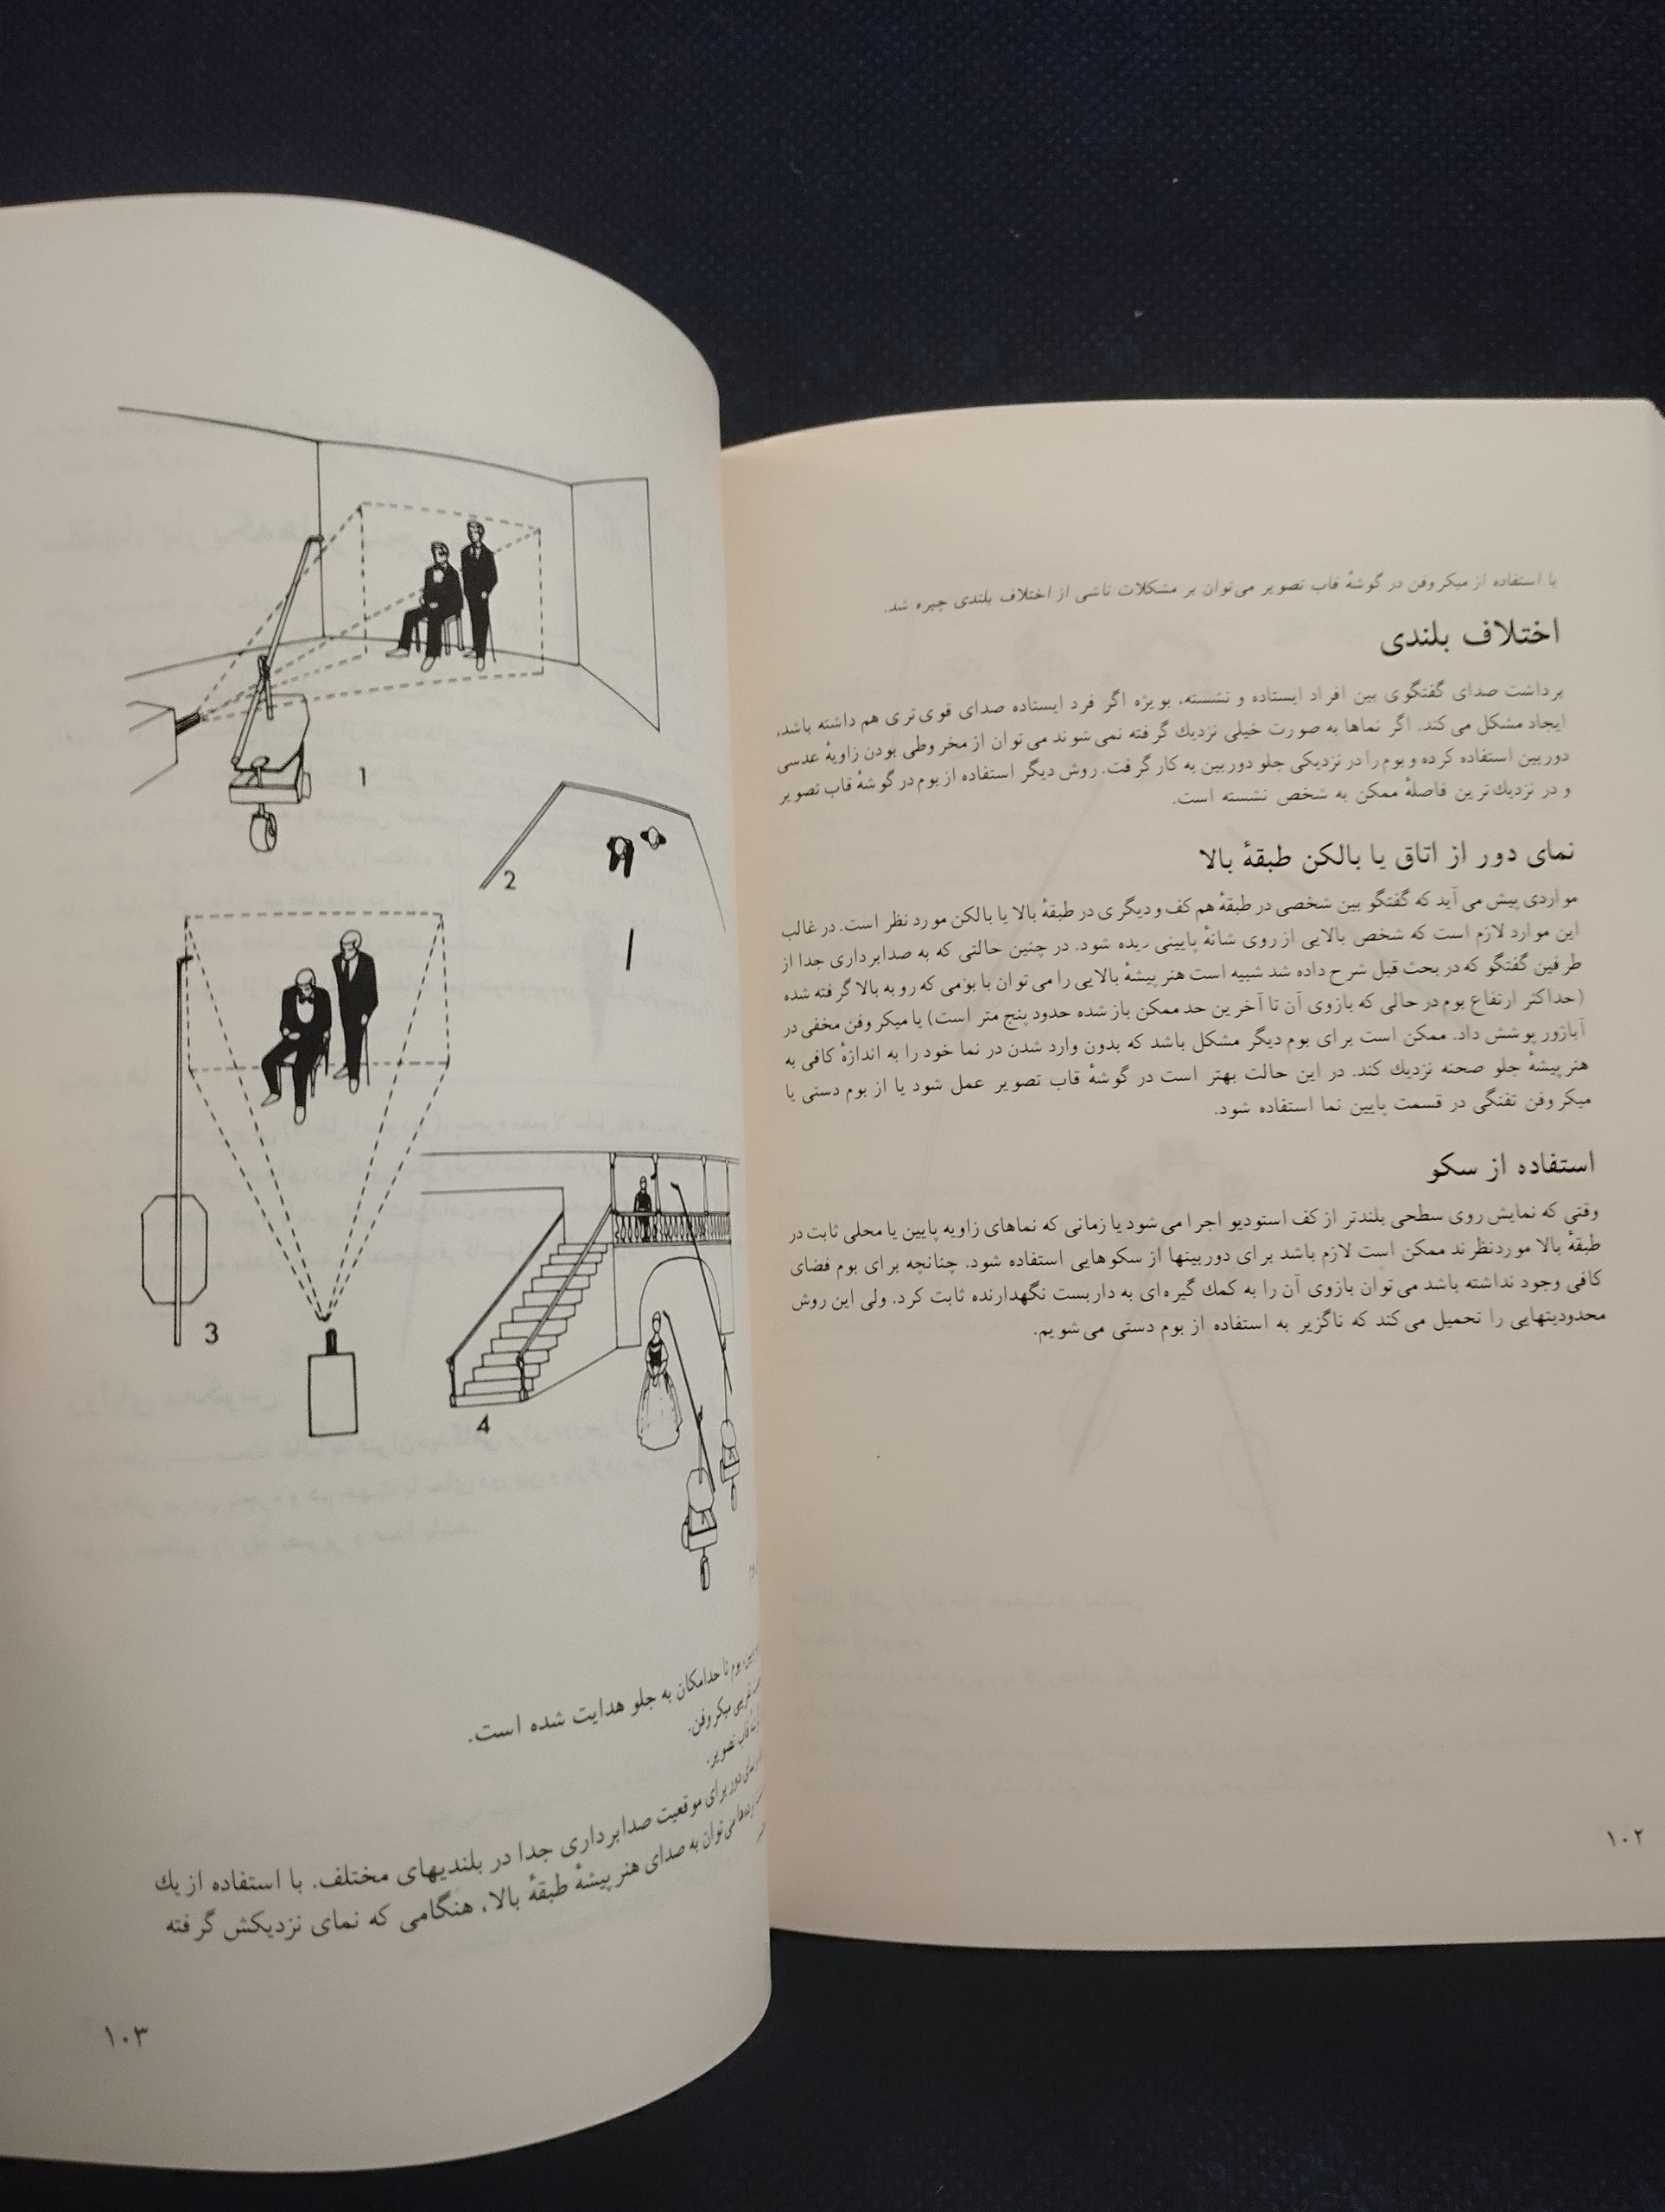 با استفاده از میکروفن در گوشهٔ قاب تصویر می‌توان بر مشکلات ناشی از اختلاف بلندی چیره شد.
اختلاف بلندی
برداشت صدای گفتگوی بین افراد ایستاده و نشسته، بویژه اگر فرد ایستاده صدای قوی‌تری هم داشته باشد،
ایجاد مشکل می‌کند. اگر نماها به صورت خیلی نزدیك گرفته نمی‌شوند می‌توان از مخروطی بودن زاویهٔ عدسی
دوربین استفاده کرده و بوم را در نزدیکی جلو دوربین به کار گرفت. روش دیگر استفاده از بوم در گوشهٔ قاب تصویر
و در نزدیك‌ترین فاصلهٔ ممکن به شخص نشسته است.
نمای دور از اتاق یا بالکن طبقهٔ بالا
مواردی پیش می‌آید که گفتگو بین شخصی در طبقهٔ هم کف و دیگری در طبقهٔ بالا یا بالکن مورد نظر است. در غالب
این موارد لازم است که شخص بالایی از روی شانهٔ پایینی دیده شود. در چنین حالتی که به صدابرداری جدا از
طرفین گفتگو که در بحث قبل شرح داده شد شبیه است هنرپیشهٔ بالایی را می‌توان با بومی که رو به بالا گرفته شده
(حداکثر ارتفاع بوم در حالی که بازوی آن تا آخرین حد ممکن باز شده حدود پنج متر است) یا میکروفن مخفی در
آباژور پوشش داد. ممکن است برای بوم دیگر مشکل باشد که بدون وارد شدن در نما خود را به اندازهٔ کافی به
هنرپیشهٔ جلو صحنه نزدیك کند. در این حالت بهتر است در گوشهٔ قاب تصویر عمل شود یا از بوم دستی یا
میکروفن تفنگی در قسمت پایین نما استفاده شود.
استفاده از سکو
وقتی که نمایش روی سطحی بلندتر از کف استودیو اجرا می‌شود یا زمانی که نماهای زاویه پایین یا محلی ثابت در
طبقهٔ بالا موردنظرند ممکن است لازم باشد برای دوربینها از سکوهایی استفاده شود. چنانچه برای بوم فضای
کافی وجود نداشته باشد می‌توان بازوی آن را به کمك گیره‌ای به داربست نگهدارنده ثابت کرد. ولی این روش
محدودیتهایی را تحمیل می‌کند که ناگزیر به استفاده از بوم دستی می‌شویم.
۱۰۲
1
2
3
4
بوم تا حدامکان به جلو هدایت شده است.
میکروفن.
قاب تصویر.
دور برای موقعیت صدابرداری جدا در بلندیهای مختلف. با استفاده از یك
می‌توان به صدای هنرپیشهٔ طبقهٔ بالا، هنگامی که نمای نزدیکش گرفته
۱۰۳